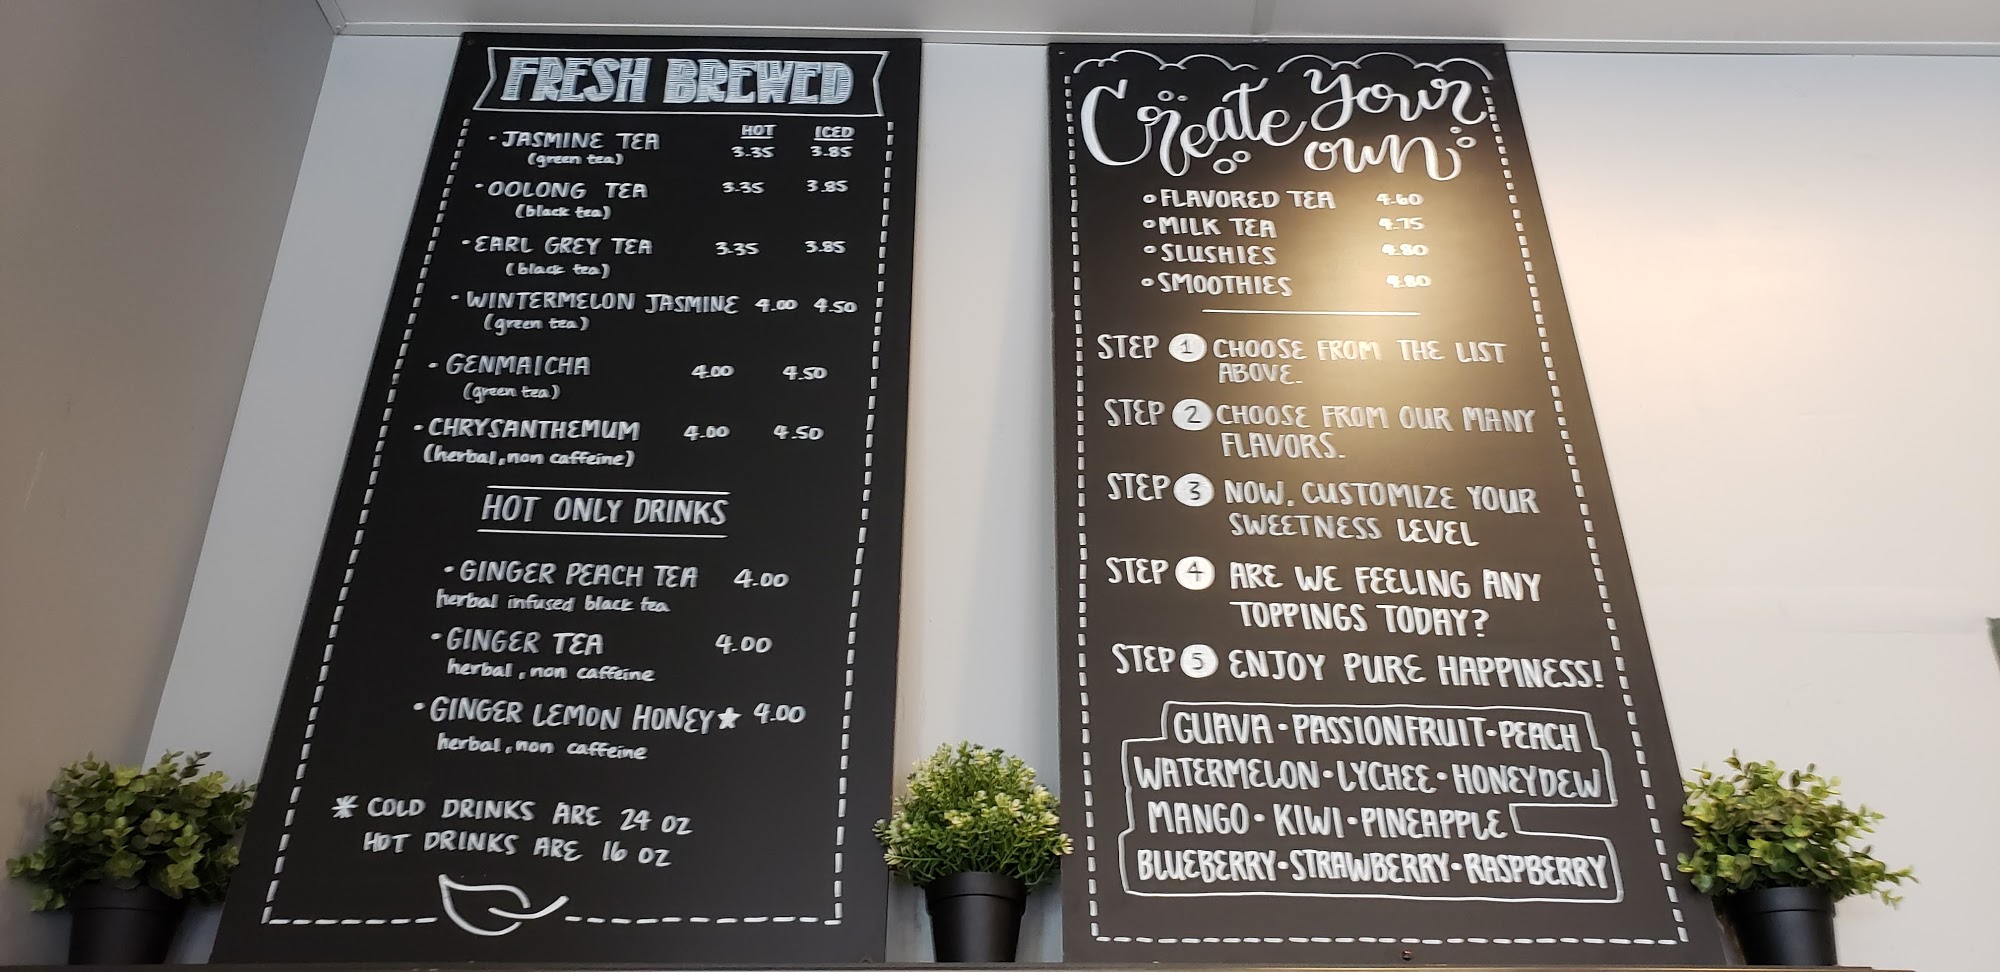 FRESH BREWED
HOT ICED
• JASMINE TEA 3.35 3.85
(green tea)
• OOLONG TEA 3.35 3.85
(black tea)
• EARL GREY TEA 3.35 3.85
(black tea)
• WINTERMELON JASMINE 4.00 4.50
(green tea)
• GENMAICHA 4.00 4.50
(green tea)
• CHRYSANTHEMUM 4.00 4.50
(herbal, non caffeine)
HOT ONLY DRINKS
• GINGER PEACH TEA 4.00
herbal infused black tea
• GINGER TEA 4.00
herbal, non caffeine
• GINGER LEMON HONEY★ 4.00
herbal, non caffeine
* COLD DRINKS ARE 24 OZ
HOT DRINKS ARE 16 OZ
Create Your
own
• FLAVORED TEA 4.60
• MILK TEA 4.75
• SLUSHIES 4.80
• SMOOTHIES 4.80
STEP 1 CHOOSE FROM THE LIST
ABOVE.
STEP 2 CHOOSE FROM OUR MANY
FLAVORS.
STEP 3 NOW, CUSTOMIZE YOUR
SWEETNESS LEVEL
STEP 4 ARE WE FEELING ANY
TOPPINGS TODAY?
STEP 5 ENJOY PURE HAPPINESS!
GUAVA • PASSIONFRUIT • PEACH
WATERMELON • LYCHEE • HONEYDEW
MANGO • KIWI • PINEAPPLE
BLUEBERRY • STRAWBERRY • RASPBERRY